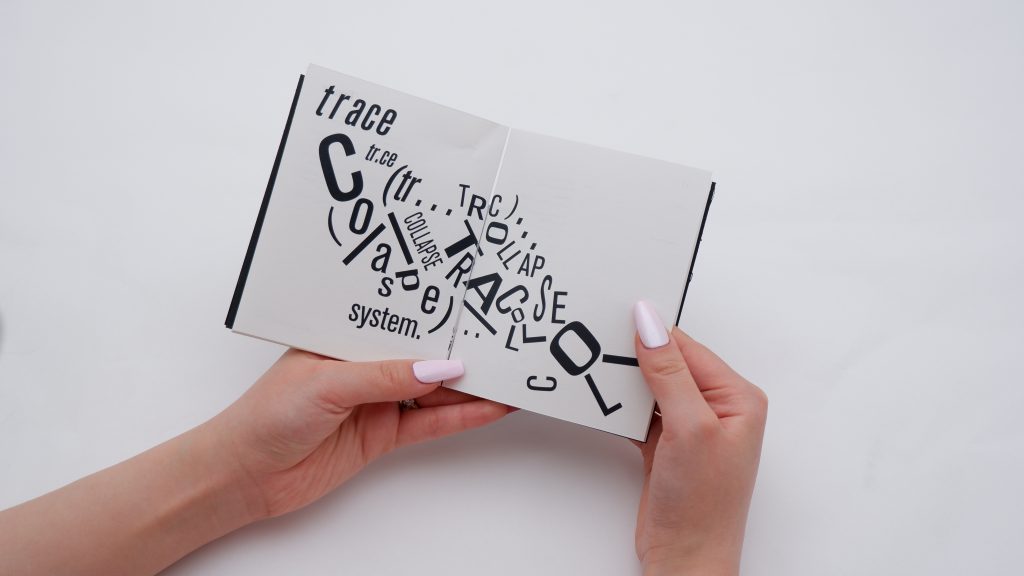 trace
tr.ce
(tr... TRC)...
Co(lapse)...
COLLAPSE
TRACOLL
COLLAPSE
system.
COL
C